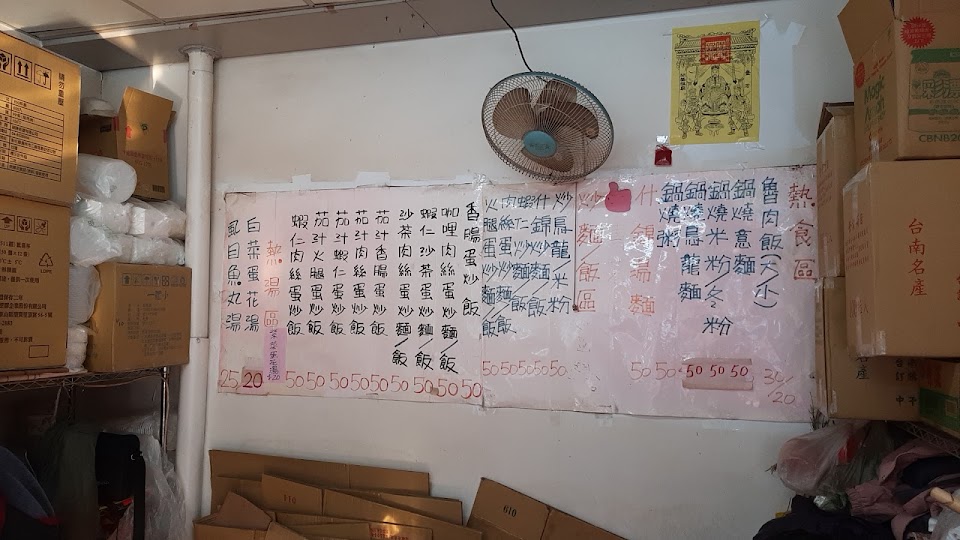 熱食區
魯肉飯(大/小) 30/20
鍋燒意麵 50
鍋燒米粉/冬粉 50
鍋燒烏龍麵 50
鍋燒粥 50
什錦湯麵 50
炒麵/飯區
炒烏龍/米粉 50
什錦炒麵/飯 50
蝦仁炒麵/飯 50
肉絲蛋炒麵/飯 50
火腿蛋炒麵/飯 50
香腸蛋炒飯 50
咖哩肉絲蛋炒麵/飯 50
蝦仁沙茶蛋炒麵/飯 50
沙茶肉絲蛋炒麵/飯 50
茄汁香腸蛋炒飯 50
茄汁肉絲蛋炒飯 50
茄汁蝦仁蛋炒飯 50
茄汁火腿蛋炒飯 50
蝦仁肉絲蛋炒飯 50
熱湯區
紫菜蛋花湯$20
白菜蛋花湯 20
虱目魚丸湯 25
台南名產
請勿重壓
610